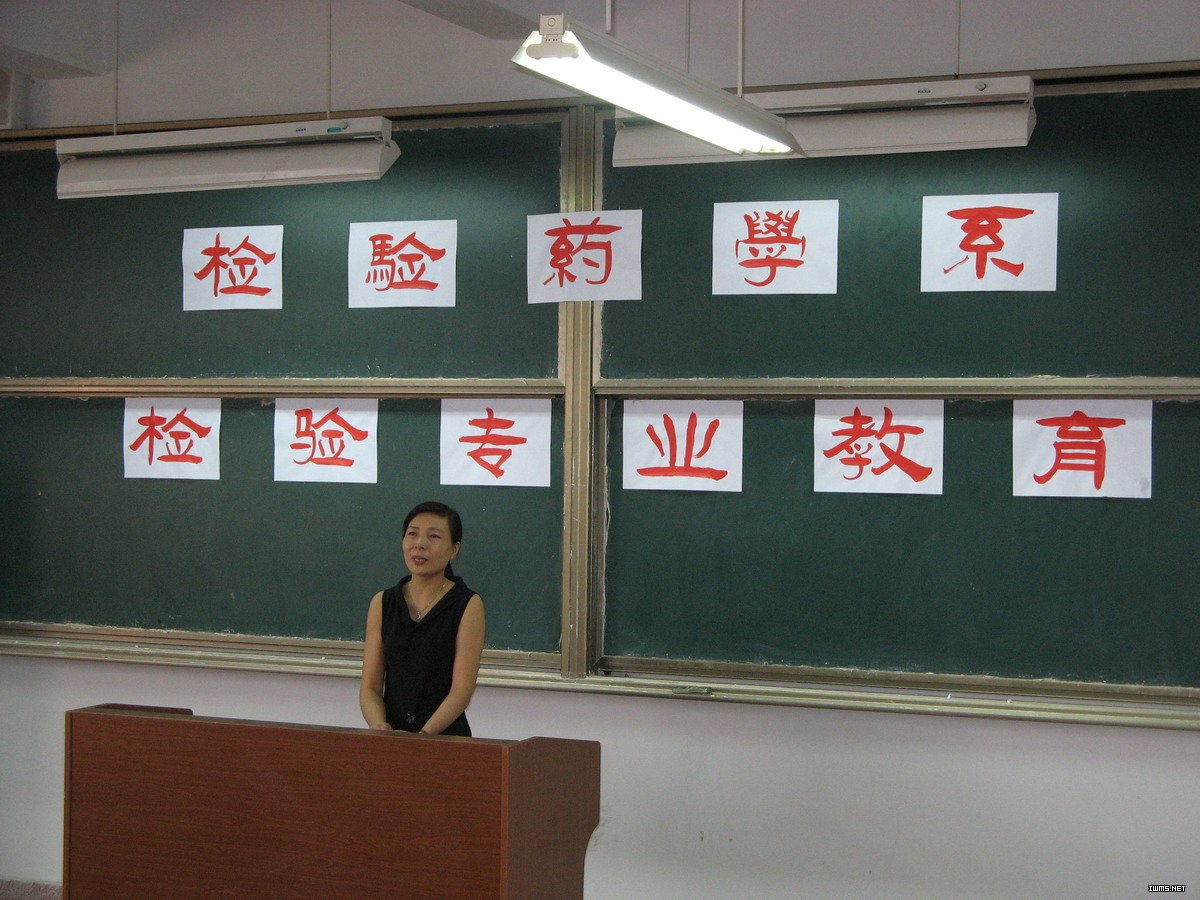 检驗葯學系
检验专业教育
IWMS.NET